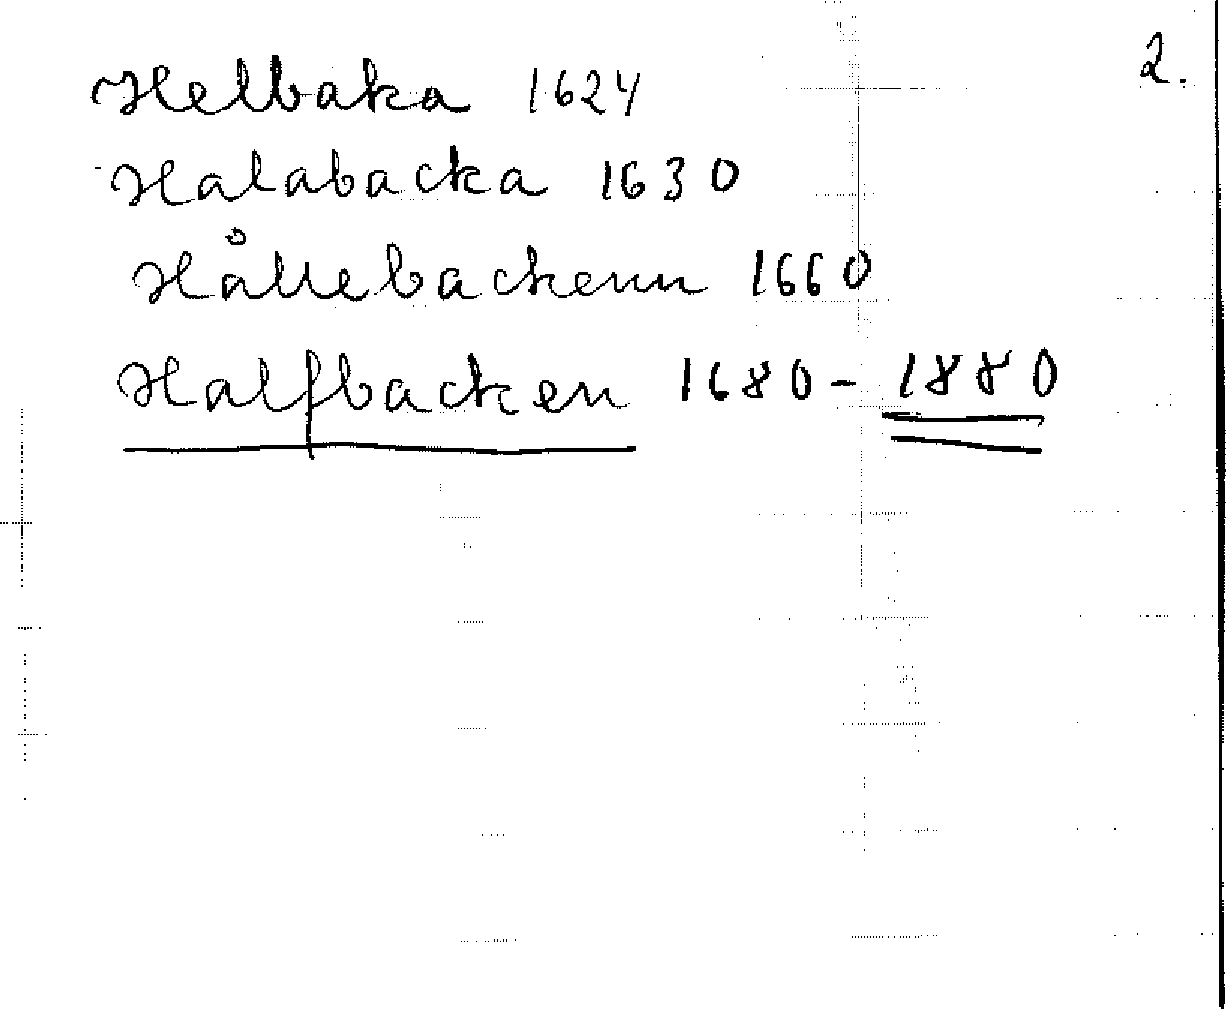 2.
Helbaka 1624
Halabacka 1630
Hållebackenn 1660
Halfbacken 1680 - 1880